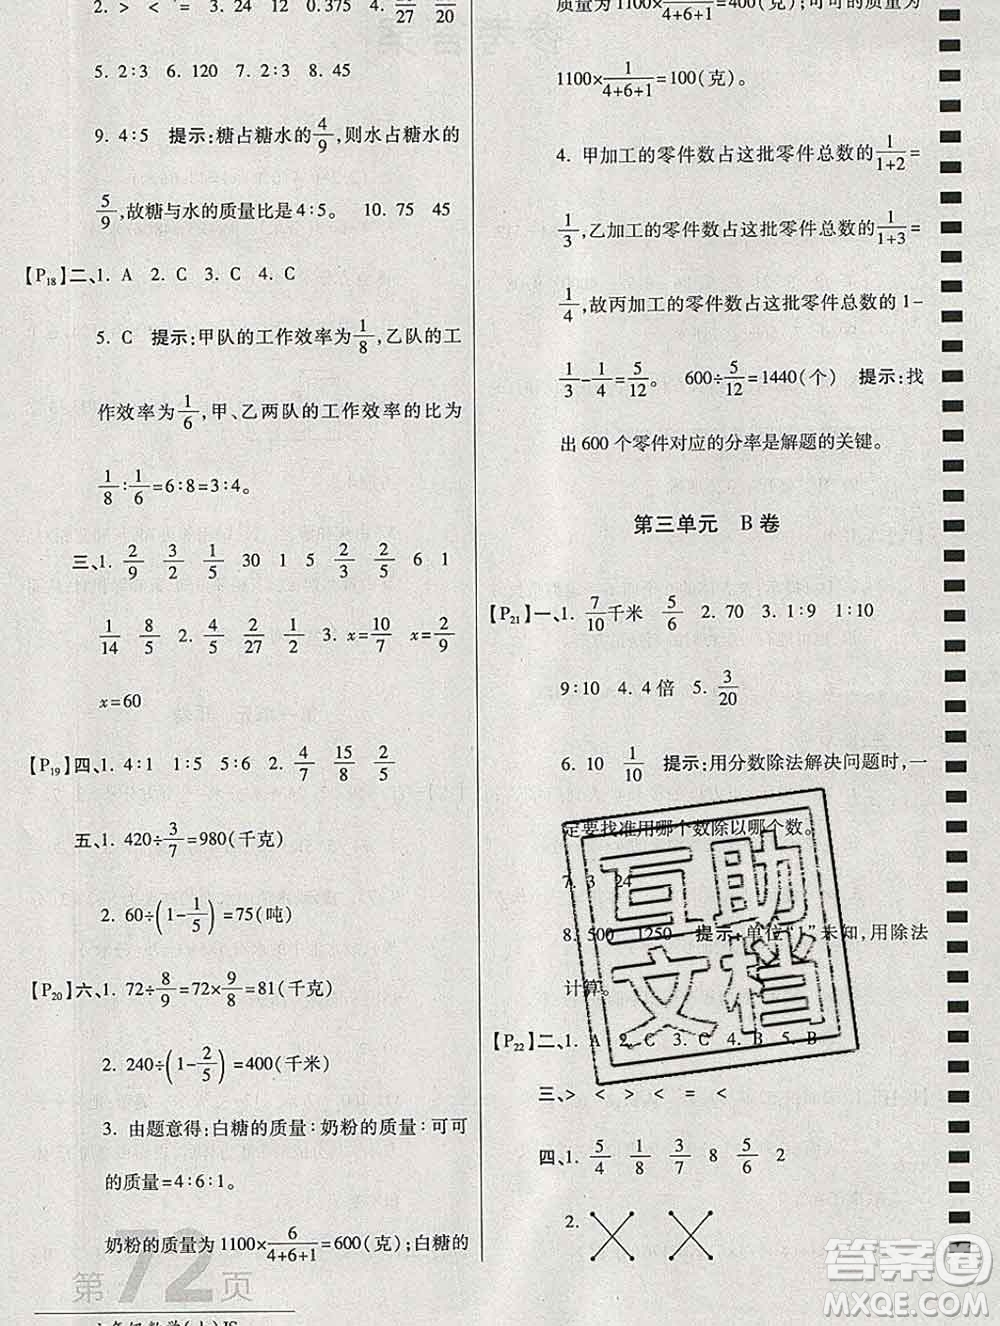 2. > < = 3. 24 12 0.375 4. /27 /20
5. 2∶3 6. 120 7. 2∶3 8. 45
9. 4∶5 提示:糖占糖水的4/9,则水占糖水的
5/9,故糖与水的质量比是4∶5。 10. 75 45
【P18】二、1. A 2. C 3. C 4. C
5. C 提示:甲队的工作效率为1/8,乙队的工
作效率为1/6,甲、乙两队的工作效率的比为
1/8∶1/6=6∶8=3∶4。
三、1. 2/9 3/2 1/9 30 1 5 3/2 6 1
1/14 8/5 2. 4/5 2/27 1/2 3. x=10/7 x=2/9
x=60
【P19】四、1. 4∶1 1∶5 5∶6 2. 4/7 15/8 2/5
五、1. 420÷3/7=980(千克)
2. 60÷(1-1/5)=75(吨)
【P20】六、1. 72÷8/9=72×9/8=81(千克)
2. 240÷(1-2/5)=400(千米)
3. 由题意得:白糖的质量∶奶粉的质量∶可可
的质量=4∶6∶1。
奶粉的质量为1100×6/(4+6+1)=600(克);白糖的
第72页
质量为1100×/(4+6+1)=400(克);可可的质量为
1100×1/(4+6+1)=100(克)。
4. 甲加工的零件数占这批零件总数的1/(1+2)=
1/3,乙加工的零件数占这批零件总数的1/(1+3)=
1/4,故丙加工的零件数占这批零件总数的1-
1/3-1/4=5/12。 600÷5/12=1440(个) 提示:找
出600个零件对应的分率是解题的关键。
第三单元 B卷
【P21】一、1. 7/10千米 5/6 2. 70 3. 1∶9 1∶10
9∶10 4. 4倍 5. 3/20
6. 10 1/10 提示:用分数除法解决问题时,一
定要找准用哪个数除以哪个数。
7. 3 24
8. 500 1250 提示:单位“1”未知,用除法
计算。
【P22】二、1. A 2. C 3. C 4. B 5. B
三、> < > < = <
四、1. 5/4 1/8 3/7 8 5/6 2
2.
互助
文档
答案圈
MXQE.COM